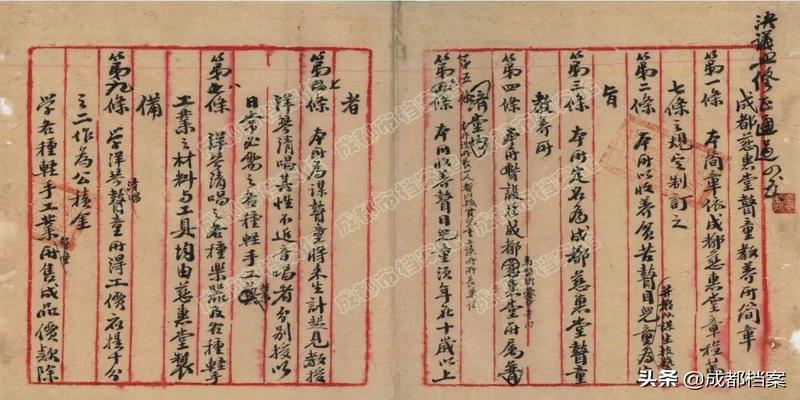 決議照修正通過
成都慈惠堂瞽童教養所簡章
第一條 本簡章依成都慈惠堂章程第
七條之規定制訂之
第二條 本所以收養貧苦瞽目兒童為
旨
第三條 本所定名為成都慈惠堂瞽童
教養所
第四條 本所暫設於成都 堂所屬普
濟堂內
第五條
本所收養瞽目兒童須年在十歲以上
者
第七條 本所為謀瞽童將來生計起見教授
洋琴清唱其性不近音唱者分別授以
日常必需之各種輕手工業
第八條 洋琴清唱之各種樂器及各種輕手
工業之材料與工具均由慈惠堂製
備
第九條 學洋琴清唱瞽童所得工價應提十分
之二作為公積金
學各種輕手工業瞽童所集成品價款除
成都市档案馆
头条 @成都档案